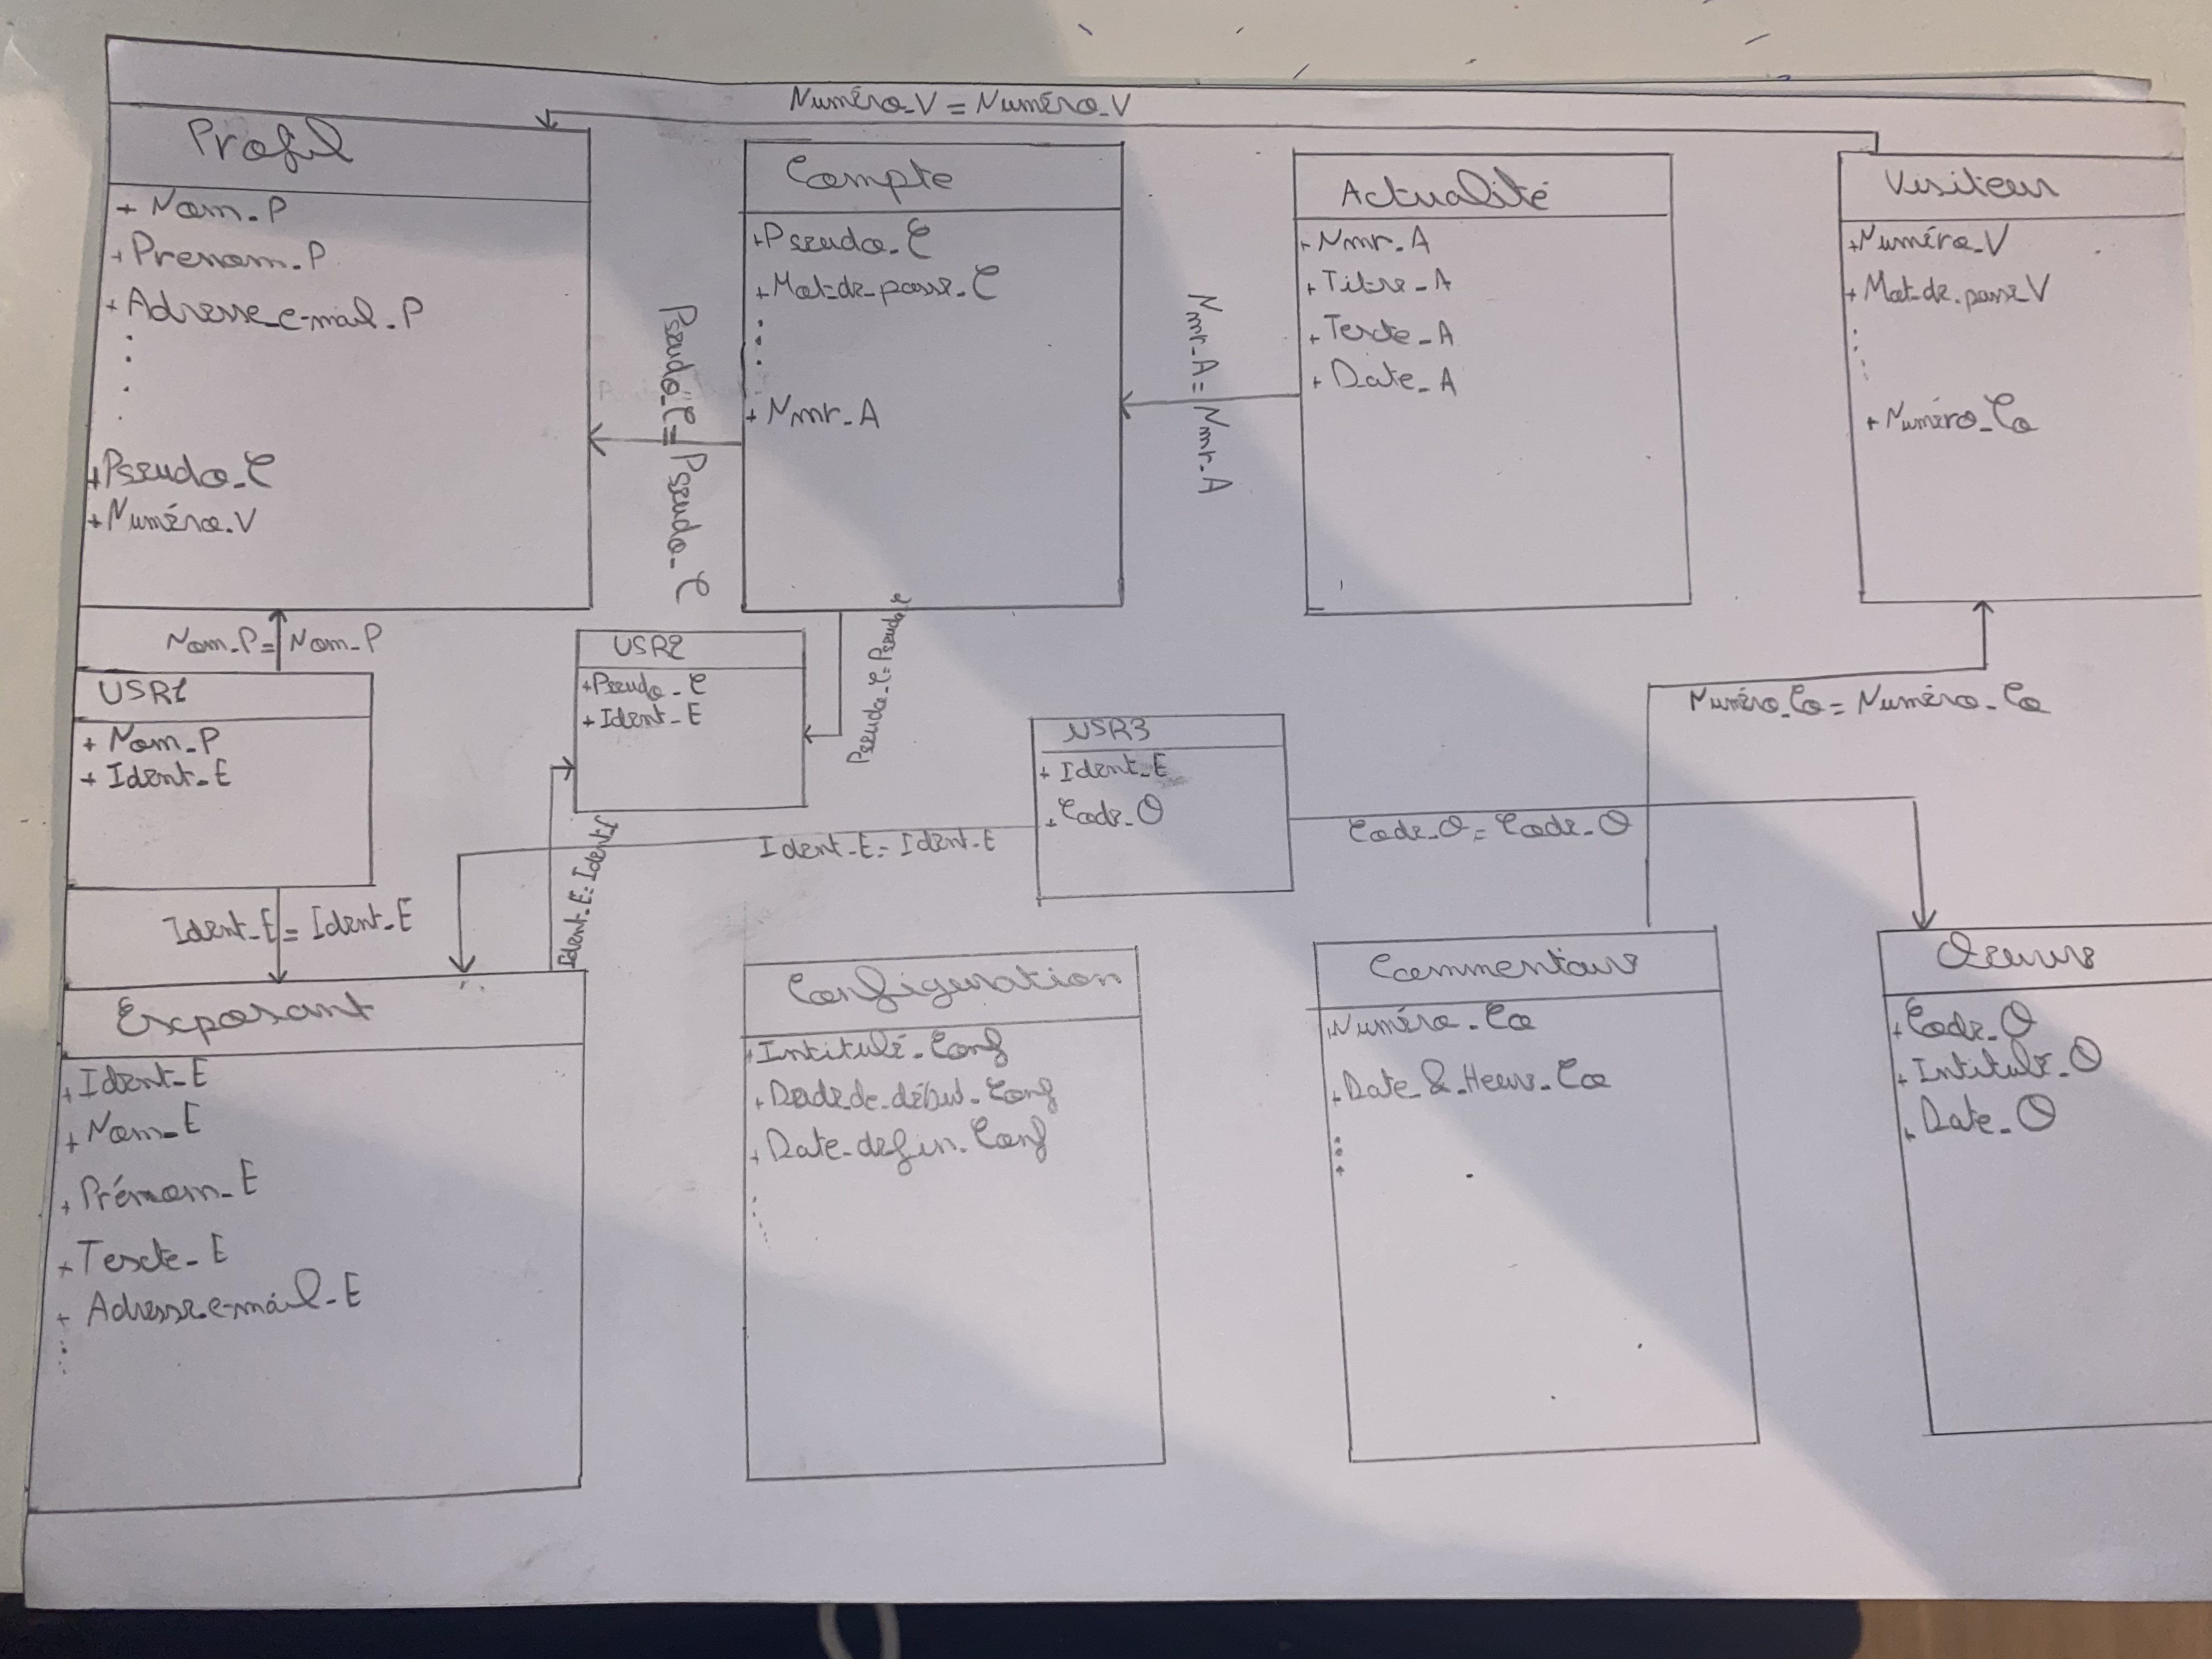 Numéro_V = Numéro_V
Profil
+ Nom_P
+ Prenom_P
+ Adresse_e-mail_P
+ Pseudo_C
+ Numéro_V
Pseudo_C = Pseudo_C
Compte
+ Pseudo_C
+ Mot_de_passe_C
+ Nmr_A
Nmr_A = Nmr_A
Actualité
+ Nmr_A
+ Titre_A
+ Texte_A
+ Date_A
Visiteur
+ Numéro_V
+ Mot_de_passe_V
+ Numéro_Co
Nom_P = Nom_P
USR1
+ Nom_P
+ Ident_E
Ident_E = Ident_E
USR2
+ Pseudo_C
+ Ident_E
Pseudo_C = Pseudo_C
Ident_E = Ident_E
USR3
+ Ident_E
+ Code_O
Ident_E = Ident_E
Code_O = Code_O
Numéro_Co = Numéro_Co
Exposant
+ Ident_E
+ Nom_E
+ Prénom_E
+ Texte_E
+ Adresse_e-mail_E
Configuration
+ Intitulé_Conf
+ Date_de_début_Conf
+ Date_de fin_Conf
Commentaire
+ Numéro_Co
+ Date_&_Heure_Co
Oeuvre
+ Code_O
+ Intitulé_O
+ Date_O